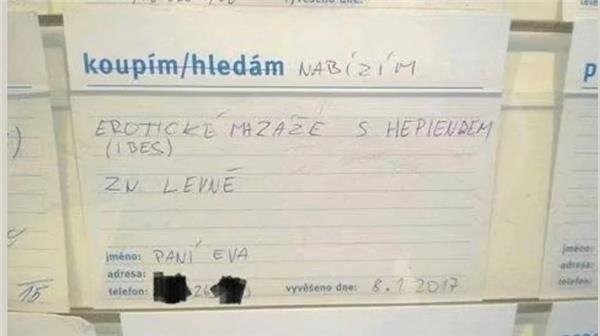 vyvěšeno dne:
koupím/hledám NABÍZÍM
p
EROTICKÉ MAZAŽE S HEPIENDEM
(I BES)
ZN LEVNĚ
jméno: PANÍ EVA
adresa:
telefon: 26
vyvěšeno dne: 8.1.2017
15